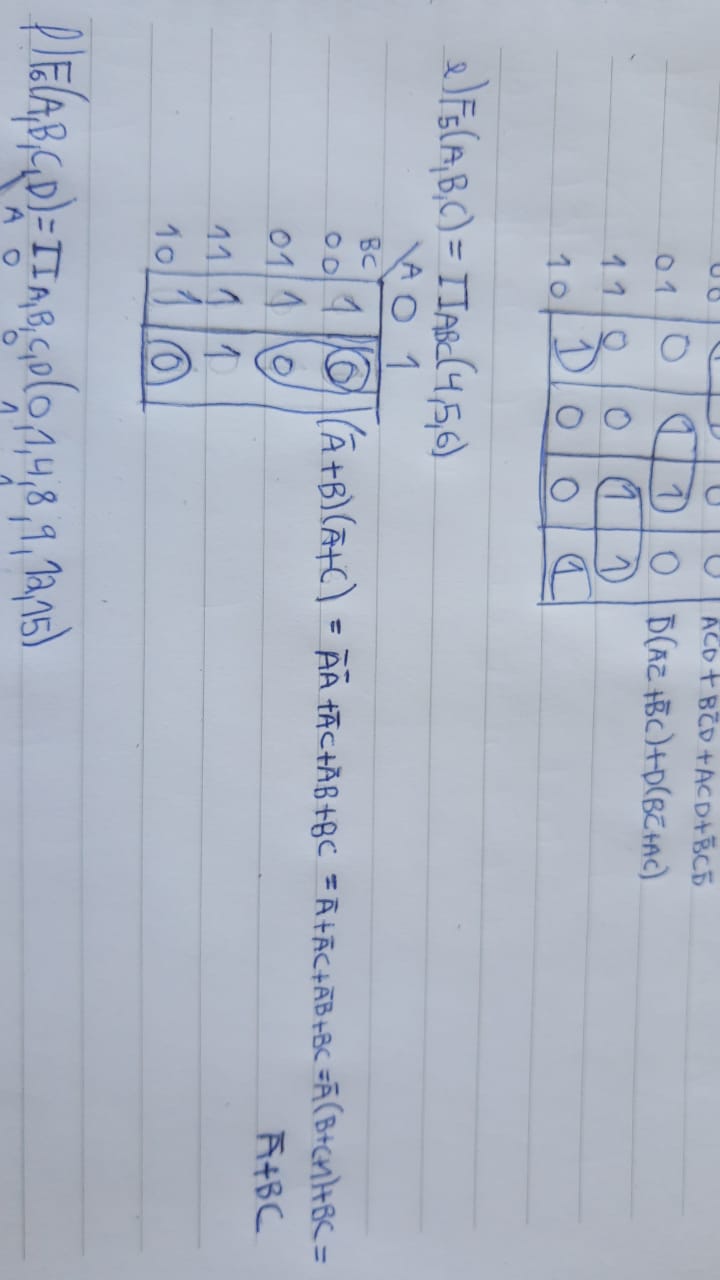 00
01 0 1 1 0
11 0 0 1 1
10 1 0 0 1
AC̄D̄ + BC̄D + ACD + B̄CD̄
D̄(AC̄ + B̄C) + D(BC̄ + AC)
e) F₅(A,B,C) = ΠABC(4,5,6)
BC \ A 0 1
00 1 0
01 1 0
11 1 1
10 1 0
(Ā+B)(Ā+C) = ĀĀ + ĀC + ĀB + BC = Ā + ĀC + ĀB + BC = Ā(B+C+1) + BC =
Ā + BC
f) F₆(A,B,C,D) = ΠA,B,C,D(0,1,4,8,9,12,15)
A 0 0 1 1